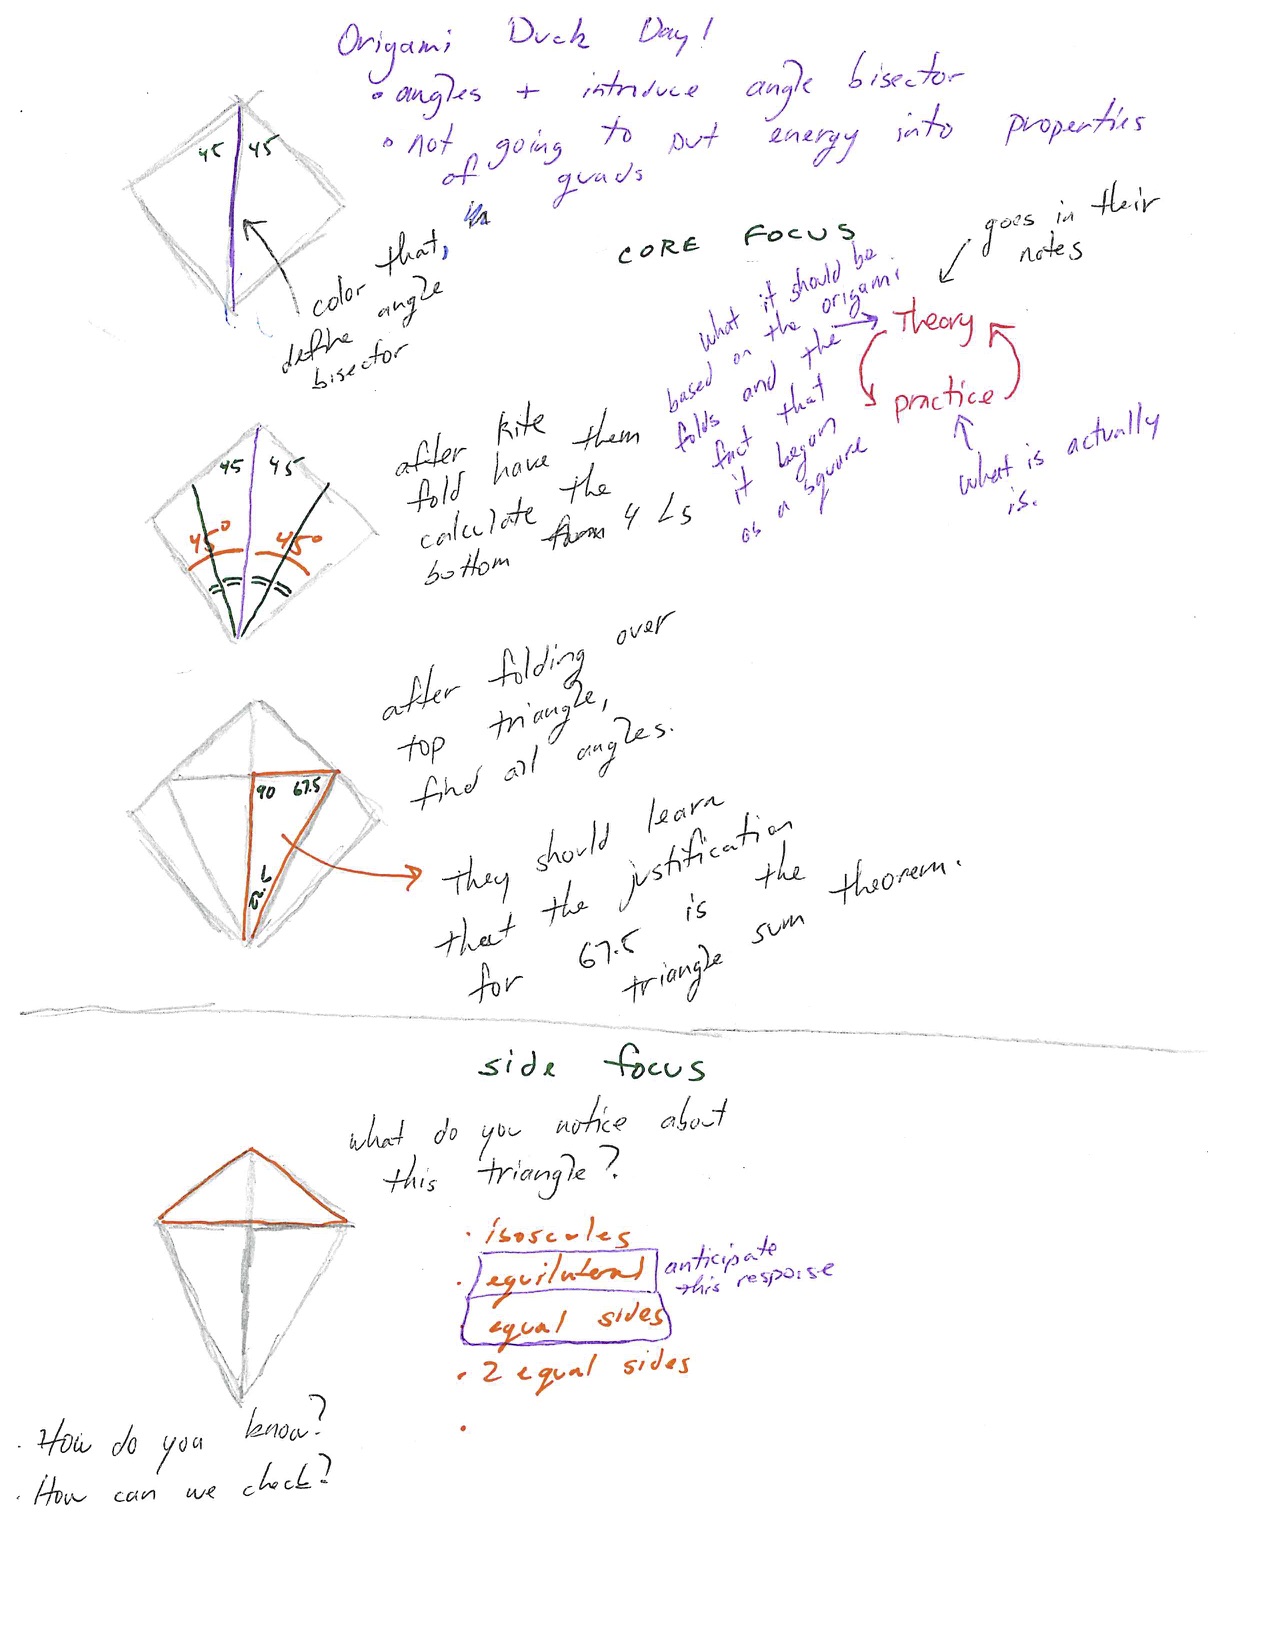 Origami Duck Day!
• angles + introduce angle bisector
• not going to put energy into properties
of quads
45 45
color that,
define angle
bisector
CORE FOCUS
goes in their
notes
what it should be
based on the origami
folds and the
fact that
it began
as a square
Theory
practice
what is actually
is.
45 45
45° 45°
after kite
fold have them
calculate the
bottom 4 ∠s
after folding over
top triangle,
find all angles.
90 67.5
22.5
they should learn
that the justification
for 67.5 is the
triangle sum theorem.
side focus
what do you notice about
this triangle?
• isosceles
• equilateral
equal sides
anticipate
this response
• 2 equal sides
•
• How do you know?
• How can we check?